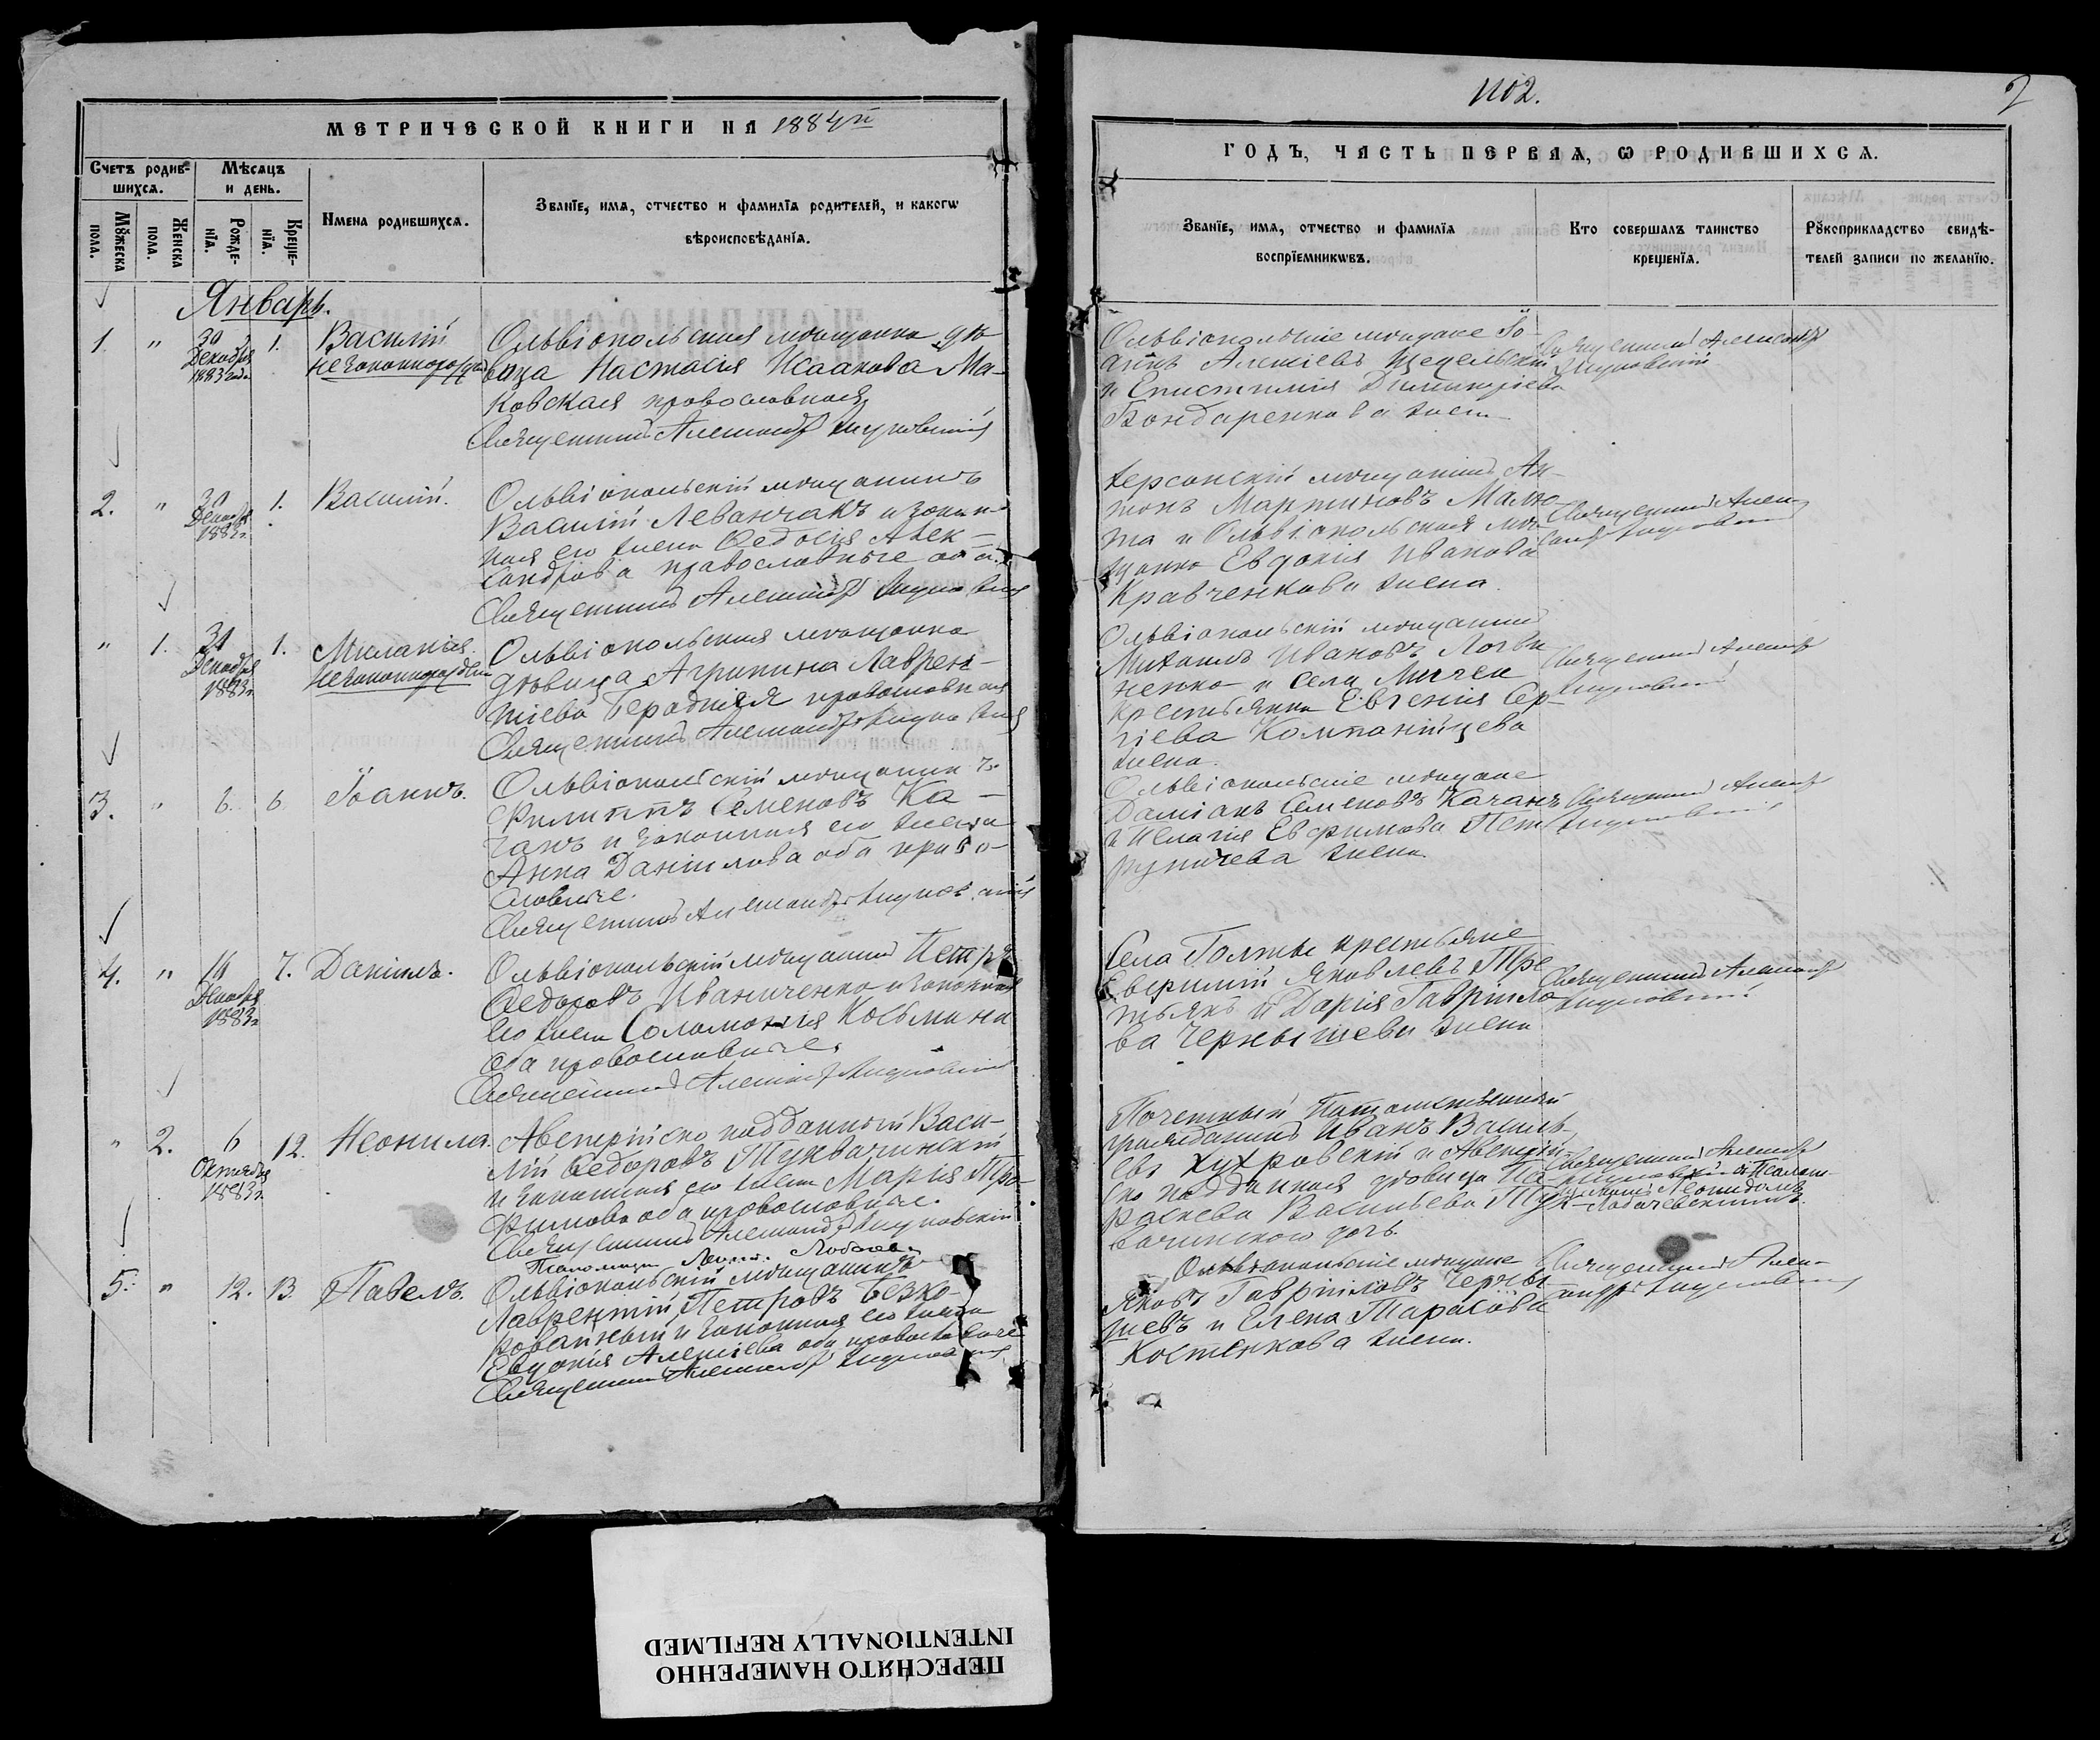 МЕТРИЧЕСКОЙ КНИГИ НА 1884й
Счетъ родив-
шихся.
Мѣсяцъ
и день.
Мужеска
пола.
Женска
пола.
Рожде-
нїя.
Креще-
нїя.
Имена родившихся.
Званїе, имя, отчество и фамилїя родителей, и какогѡ
вѣроисповѣданїя.
Январь.
1. " 30 Декабря 1883 года 1. Василій
незаконнорожд
Ольвіопольская мѣщанка дѣ-
вица Настасія Исаакова Ма-
ковская православная
Священникъ Александръ
2. " 30 Декабря 1883г. 1. Василій.
Ольвіопольскій мѣщанинъ
Василій Леванчакъ и закон-
ная его жена Ѳедосія Алек-
сандрова православные оба
Священникъ Александръ
" 1. 31 Декабря 1883г. 1. Миланія.
незаконнорожден
Ольвіопольская мѣщанка
дѣвица Агрипина Лаврен-
тіева православная
Священникъ Александръ
3. " 6. 6 Іоаннъ.
Ольвіопольскій мѣщанинъ
Филиппъ Семеновъ Ка-
чанъ и законная его жена
Анна Даніилова оба право-
славные.
Священникъ Александръ
4. " 16 Декабря 1883г. 7. Даніилъ.
Ольвіопольскій мѣщанинъ Петръ
Ѳедоровъ Иваниченко и законная
его жена Соломонія Косьмина
оба православные
Священникъ Александръ
" 2. 6 Октября 1883г. 12. Неонила.
Австрійско подданный Васи-
лій Ѳедоровъ
и законная его жена Марія Тро-
фимова оба православные.
Священникъ Александръ
Псаломщ.
5. " 12. 13 Павелъ.
Ольвіопольскій мѣщанинъ
Лаврентій Петровъ Безко-
ровайный и законная его жена
Евдокія Алексіева оба православные
Священникъ Александръ
1102.
2
ГОДЪ, ЧАСТЬ ПЕРВАЯ, Ѡ РОДИВШИХСЯ.
Званїе, имя, отчество и фамилїя
воспрїемникѡвъ.
Кто совершалъ таинство
крещенїя.
Рукоприкладство свидѣ-
телей записи по желанїю.
Ольвіопольскіе мѣщане Іо-
аннъ Алексіевъ
и Епистимія Димитріева
Бондаренкова жена
Священникъ Александръ
Херсонскій мѣщанинъ Ан-
тонъ Мартиновъ
та и Ольвіопольская мѣ-
щанка Евдокія Иванова
Кравченкова жена.
Священникъ Алек-
сандръ
Ольвіопольскій мѣщанинъ
Михаилъ Ивановъ Логви-
ненко и села Мигеи
крестьянка Евгенія Сер-
гіева Компанійцева
жена.
Священникъ Александръ
Ольвіопольскіе мѣщане
Даміанъ Семеновъ Качанъ
и Пелагія Евфимова
жена.
Священникъ Александръ
Села Голты крестьяне
Евфимій Яковлевъ Тре-
тьякъ и Дарія Гавріило-
ва Чернышева жена
Священникъ Александръ
Почетный Потомственный
гражданинъ Иванъ Василь-
евъ и Австрій-
ско подданная дѣвица Па-
раскева Васильева
дочь.
Священникъ Александръ
Ольвіопольскіе мѣщане
Яковъ Гавріиловъ Черны-
шевъ и Елена Тарасова
Костенкова жена.
Священникъ Алек-
сандръ
ПЕРЕСНЯТО НАМЕРЕННО
INTENTIONALLY REFILMED